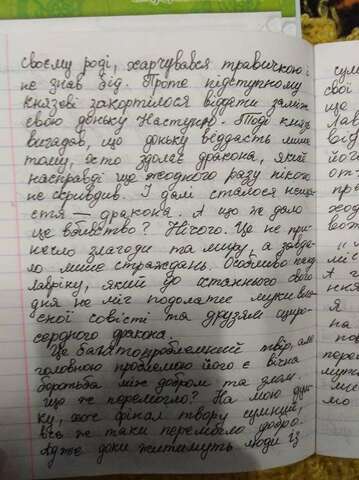 своєму роді, харчувався травичкою і
не знав бід. Проте підступному
князеві закортілося віддати заміж
свою доньку Настусю. Тоді князь
вигадав, що доньку віддасть лише
тому, хто здолає дракона, який
насправді ще жодного разу нікого
не скривдив. І далі сталося неща-
стя — дракона. А що же дало
це вбивство? Нічого. Це не при-
несло злагоди та миру, а завда-
ло лише страждань. Особливо
Лавріну, який до останнього свого
дня не міг подолати муки вла-
сної совісті та друзям щиро-
сердного дракона.
Це багатопроблемний твір, але
головною проблемою його є вічна
боротьба між добром та злом.
Що ж перемогло? На мою дум-
ку, хоч фінал твору сумний,
все ж таки перемогло добро.
Адже доки житимуть люди із
сум
свої
ще
Лав
від
його
от
пр
ход
вож
міс
А
ння
Я
на
пов
перем
мут
ме
мо